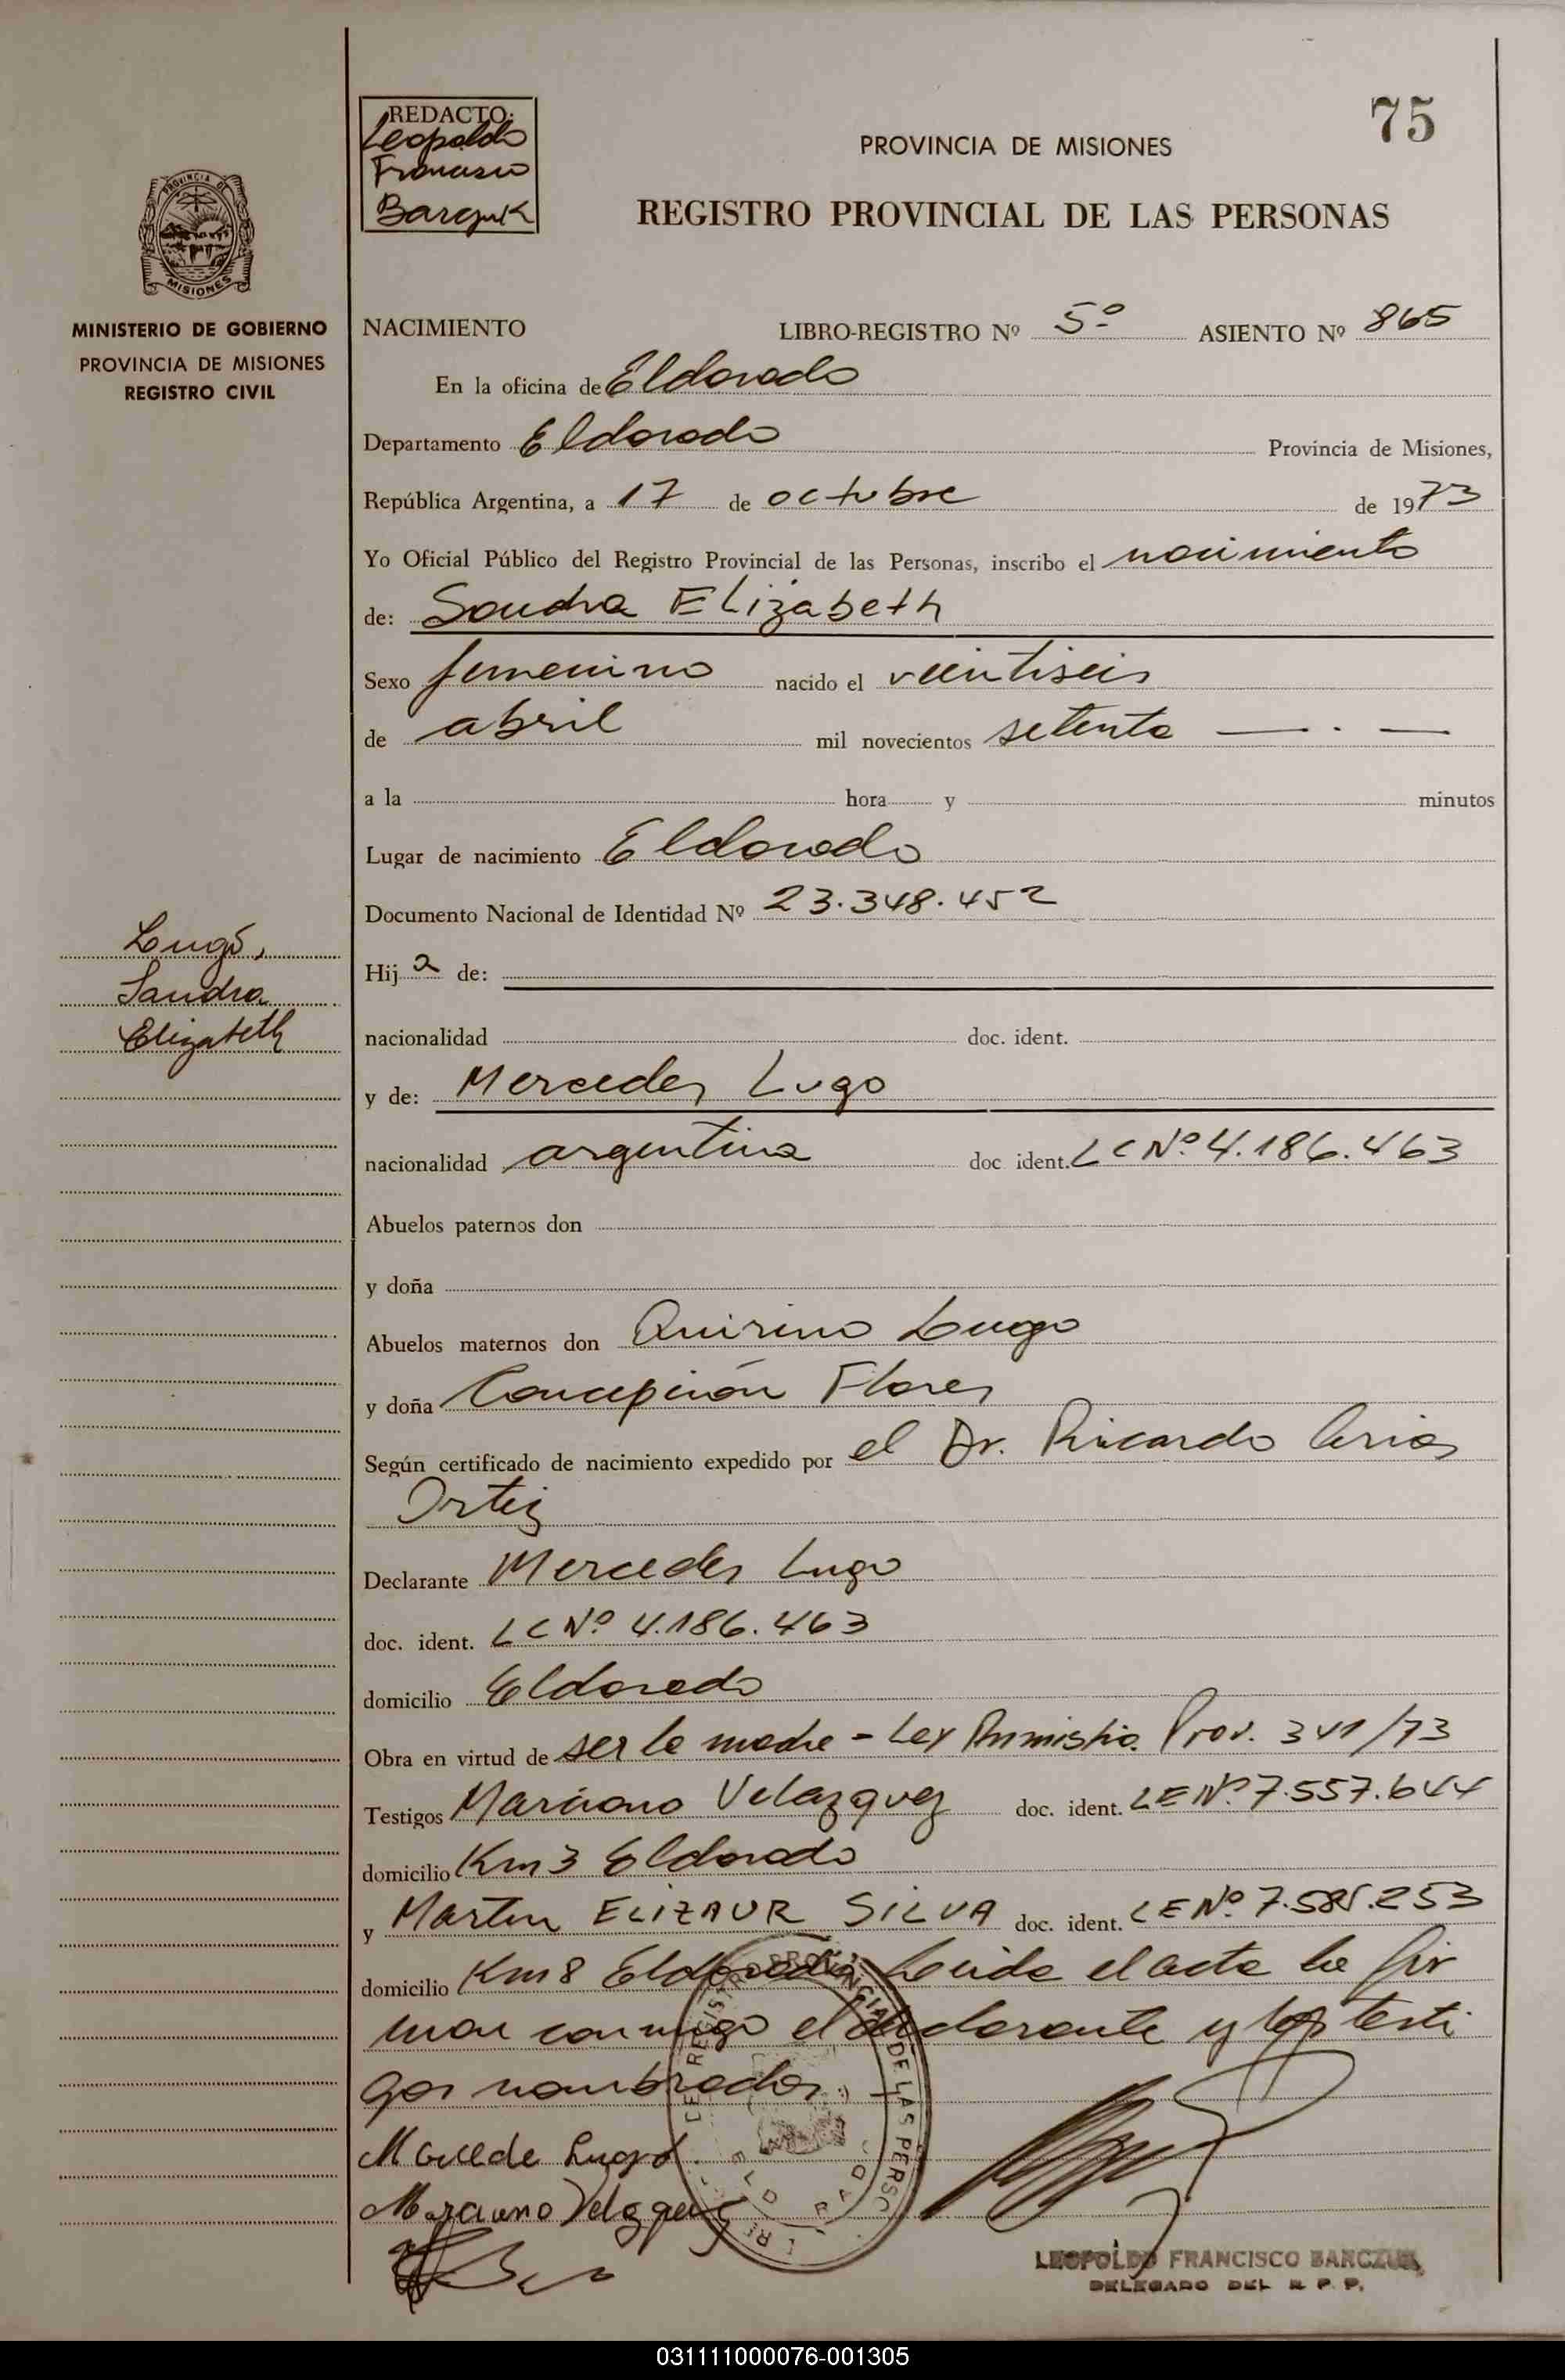 75
REDACTO:
Leopoldo
Francisco
Barczuk
PROVINCIA DE MISIONES
REGISTRO PROVINCIAL DE LAS PERSONAS
PROVINCIA DE
MISIONES
MINISTERIO DE GOBIERNO
PROVINCIA DE MISIONES
REGISTRO CIVIL
Lugo,
Sandra
Elizabeth
NACIMIENTO LIBRO-REGISTRO Nº 5º ASIENTO Nº 865
En la oficina de Eldorado
Departamento Eldorado Provincia de Misiones,
República Argentina, a 17 de octubre de 1973
Yo Oficial Público del Registro Provincial de las Personas, inscribo el nacimiento
de: Sandra Elizabeth
Sexo femenino nacido el veintiseis
de abril mil novecientos setenta — . —
a la hora y minutos
Lugar de nacimiento Eldorado
Documento Nacional de Identidad Nº 23.348.452
Hij a de:
nacionalidad doc. ident.
y de: Mercedes Lugo
nacionalidad argentina doc. ident. LC Nº 4.186.463
Abuelos paternos don
y doña
Abuelos maternos don Quirino Lugo
y doña Concepción Flores
Según certificado de nacimiento expedido por el Dr. Ricardo Arias
Ortiz
Declarante Mercedes Lugo
doc. ident. LC Nº 4.186.463
domicilio Eldorado
Obra en virtud de ser la madre - Ley Amnistia Prov. 341/73
Testigos Marciano Velazquez doc. ident. LE Nº 7.557.644
domicilio Km 3 Eldorado
y Martin ELIZAUR SILVA doc. ident. LE Nº 7.585.253
domicilio Km 8 Eldorado Leida el acta la fir
man conmigo el declarante y los testi
gos nombrados
Mercede Lugo
Marciano Velazquez
LEOPOLDO FRANCISCO BARCZUK
DELEGADO DEL R. P. P.
031111000076-001305